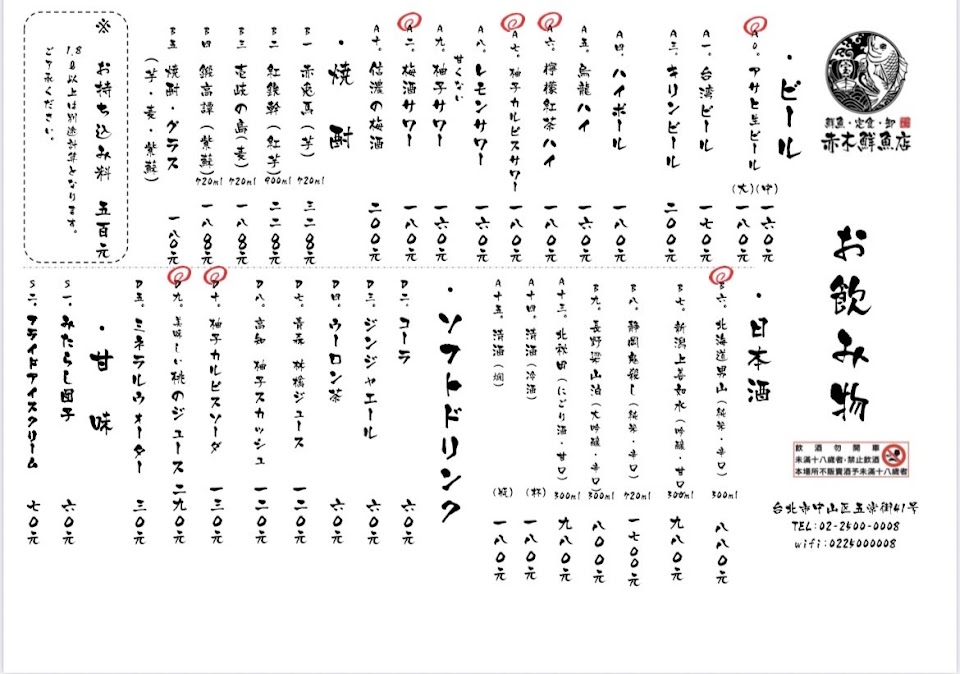 鮮魚・定食・卸
赤木鮮魚店
お飲み物
飲酒勿開車
未滿十八歲者・禁止飲酒
本場所不販賣酒予未滿十八歲者
台北市中山区五常街41号
TEL:02-2500-0008
wifi:0225000008
・ビール
A0。アサヒ生ビール (中) 一六0元
(大) 一八0元
A一。台湾ビール 一七0元
A三。キリンビール 二00元
A四。ハイボール 一八0元
A五。烏龍ハイ 一六0元
A六。檸檬紅茶ハイ 一八0元
A七。柚子カルピスサワー 一八0元
A八。レモンサワー 一六0元
甘くない
A九。柚子サワー 一六0元
A二。梅酒サワー 一八0元
A十。信濃の梅酒 二00元
・焼酎
B一 赤兎馬(芋) 720ml 三二八0元
B二 紅鉄幹(紅芋) 900ml 二二八0元
B三 壱岐の島(麦) 720ml 一八八0元
B四 鍛高譚(紫蘇) 720ml 一八八0元
B五 焼酎・グラス 一八0元
(芋・麦・紫蘇)
※ お持ち込み料 五百元
1.8ℓ以上は別途計算となります。
ご了承ください。
・日本酒
B六。北海道男山(純米・辛口) 300ml 八八0元
B七。新潟上善如水(吟醸・甘口) 300ml 九八0元
B八。静岡鬼殺し(純米・辛口) 720ml 一七00元
B九。長野梁山泊(大吟醸・辛口) 300ml 八八0元
A十三。北秋田(にごり酒・甘口) 300ml 九八0元
A十四。清酒(冷酒) (杯) 一八0元
A十五。清酒(燗) (瓶) 一八0元
・ソフトドリンク
D二。コーラ 六0元
D三。ジンジャエール 六0元
D四。ウーロン茶 六0元
D七。青森 林檎ジュース 一二0元
D八。高知 柚子スカッシュ 一二0元
D十。柚子カルピスソーダ 一三0元
D九。美味しい桃のジュース 二九0元
D五。ミネラルウォーター 三0元
・甘味
S一。みたらし団子 六0元
S二。フライドアイスクリーム 七0元